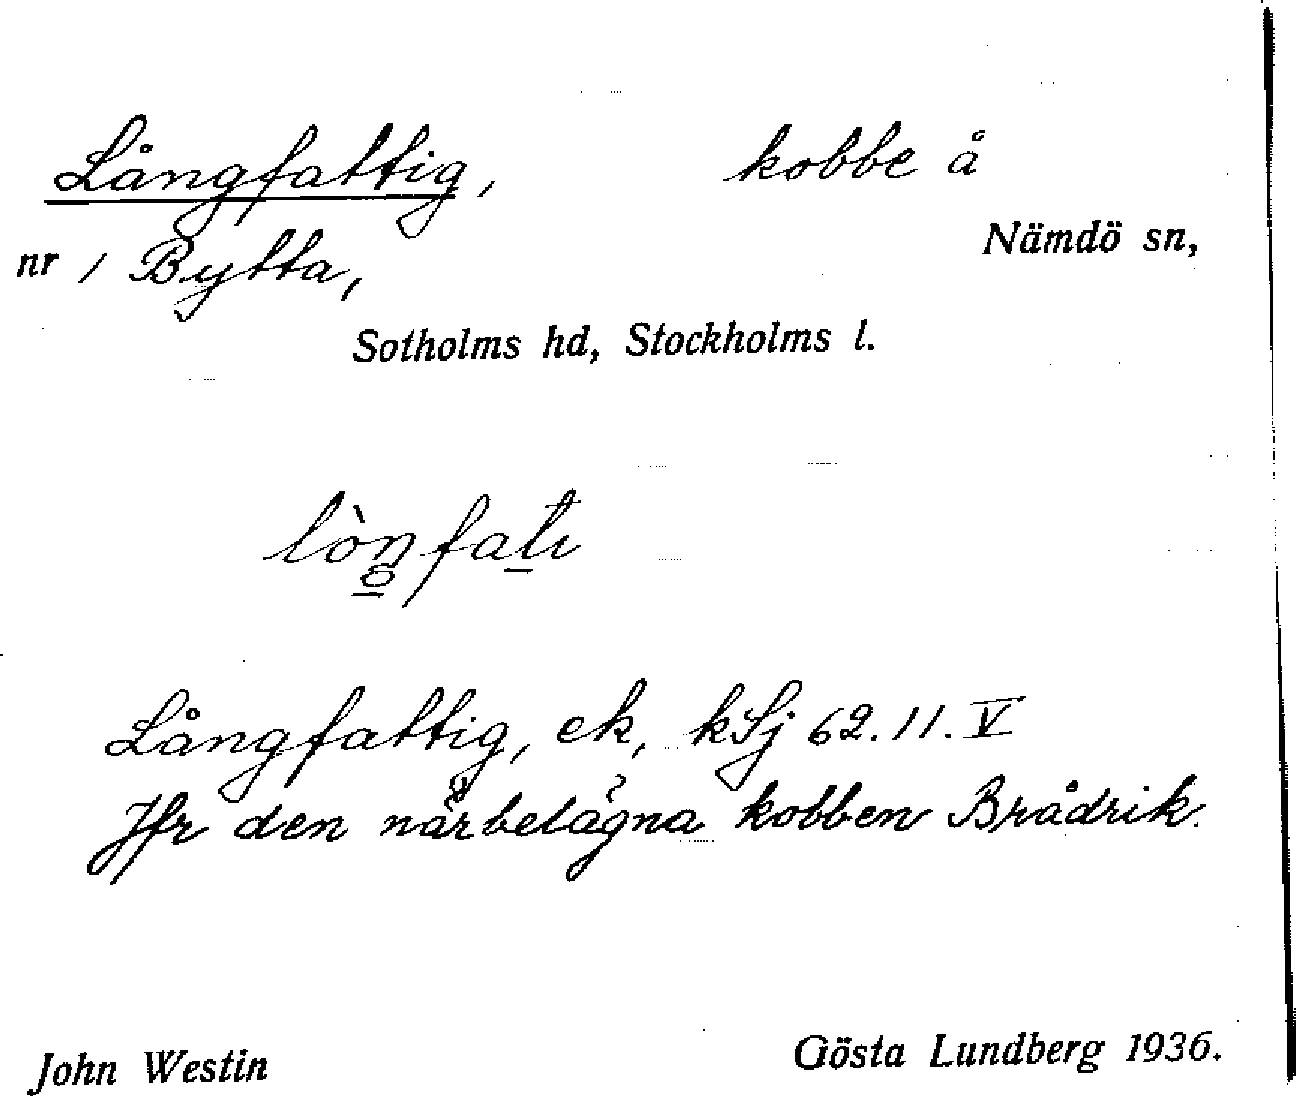 Långfattig, kobbe å
nr 1 Bytta, Nämdö sn,
Sotholms hd, Stockholms l.
lòn̥fatı
Långfattig, ek, kSj 62.11.V
Jfr den närbelägna kobben Brådrik.
John Westin Gösta Lundberg 1936.